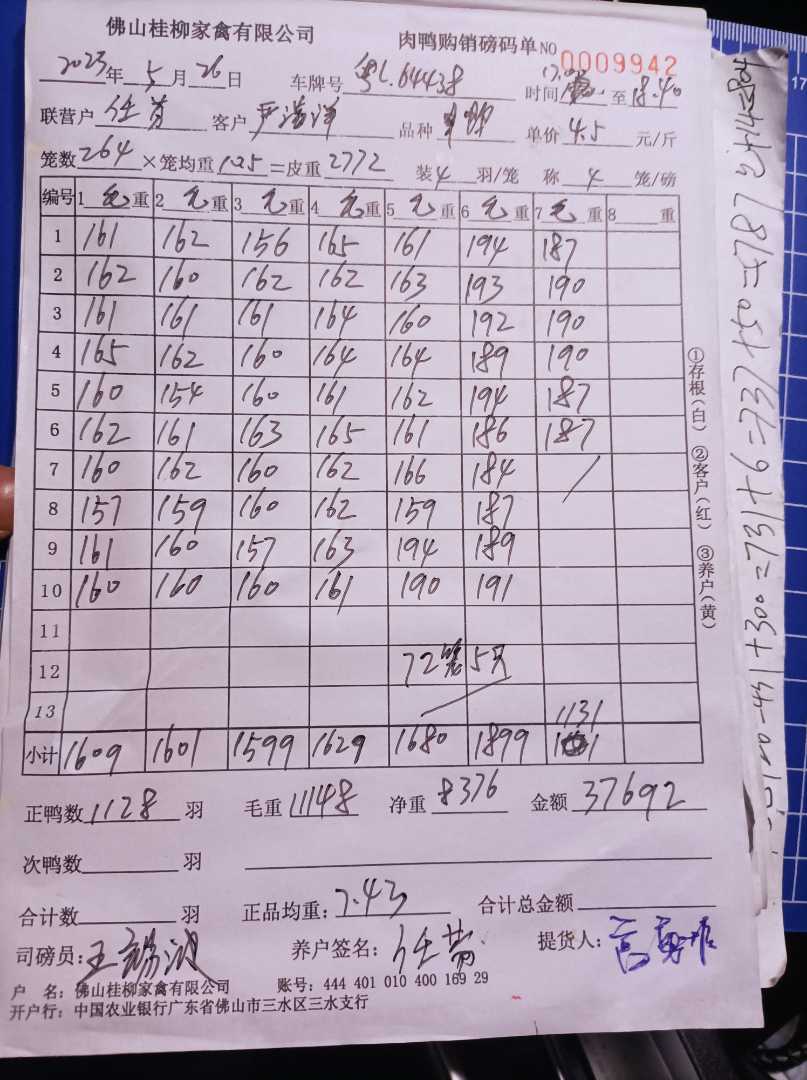 佛山桂柳家禽有限公司 肉鸭购销磅码单 NO 0009942
2023年 5月 26日 车牌号 粤L.64438 时间 至 18.40
联营户 任 客户 严 品种 单价 4.5 元/斤
笼数 264 × 笼均重 10.5 = 皮重 2772 装 4 羽/笼 称 4 笼/磅
编号 1 毛重 2 毛重 3 毛重 4 毛重 5 毛重 6 毛重 7 毛重 8 重
1 161 162 156 165 161 194 187
2 162 160 162 162 163 193 190
3 161 161 161 164 160 192 190
4 165 162 160 164 164 189 190
5 160 154 160 161 162 194 187
6 162 161 163 165 161 186 187
7 160 162 160 162 166 184 /
8 157 159 160 162 159 187
9 161 160 157 163 194 189
10 160 160 160 161 190 191
11
12 72笼 5只
13 1131
小计 1609 1601 1599 1629 1680 1899
正鸭数 1128 羽 毛重 11148 净重 8376 金额 37692
次鸭数 羽
合计数 羽 正品均重: 7.43 合计总金额
司磅员: 王 养户签名: 任 提货人:
户 名: 佛山桂柳家禽有限公司 账号: 444 401 010 400 169 29
开户行: 中国农业银行广东省佛山市三水区三水支行
①存根(白) ②客户(红) ③养户(黄)
17